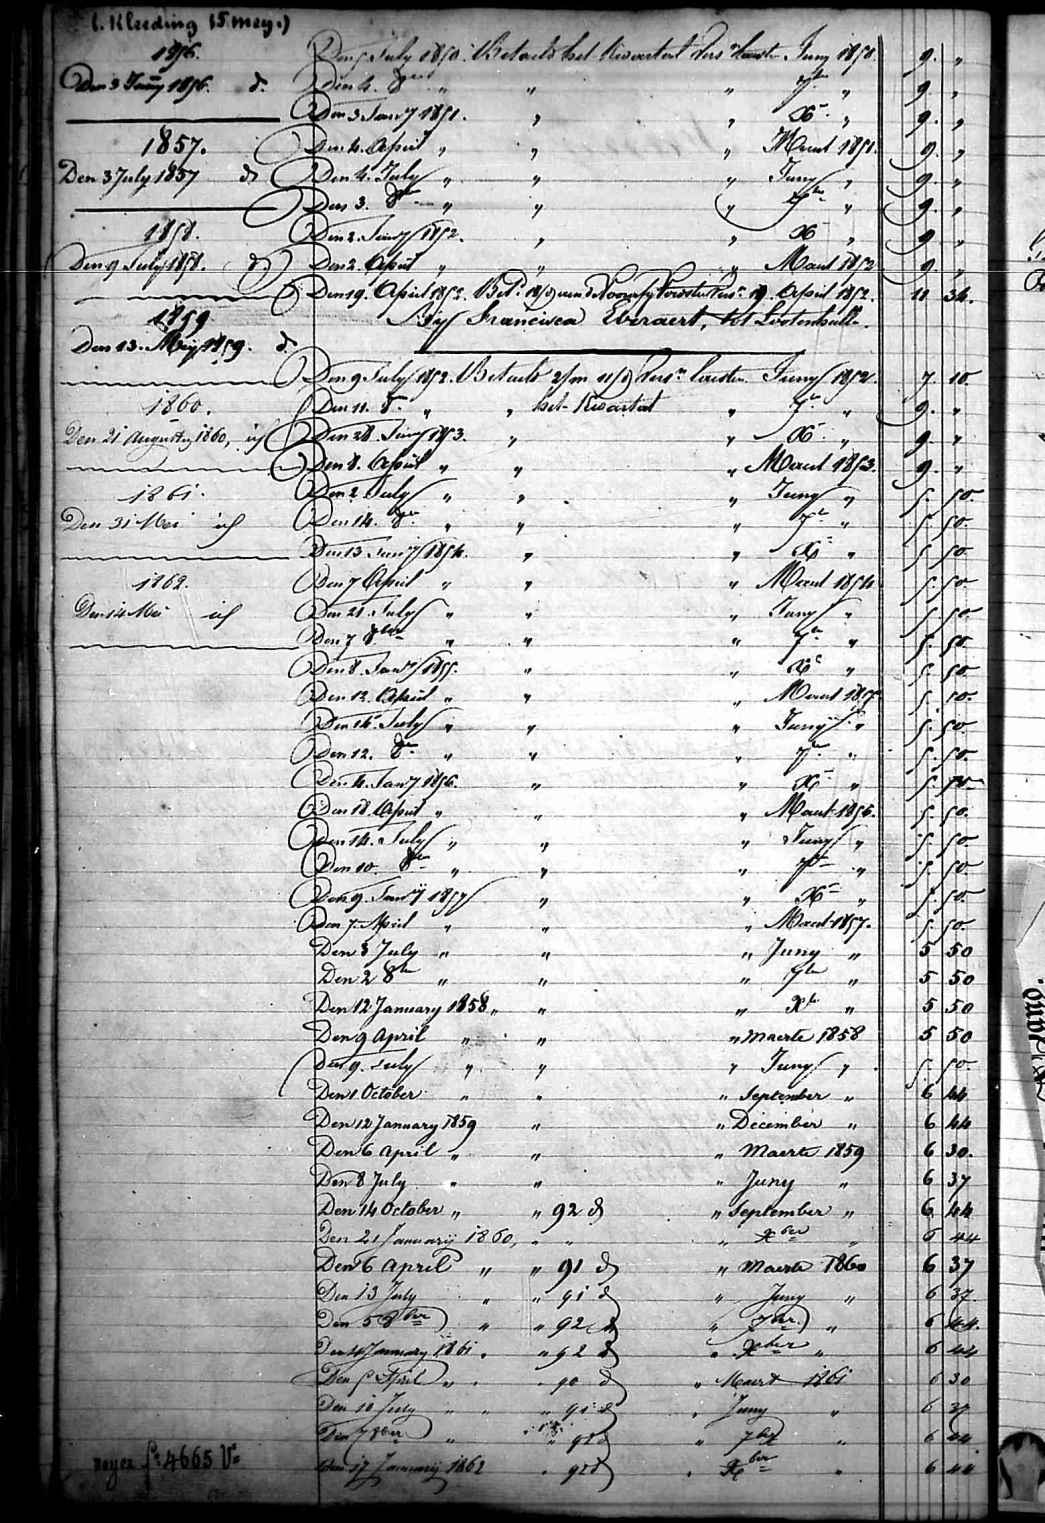 (. Kleeding 15 mey.)
1856.
Den 3 Juny 1856. d.
1857.
Den 3 July 1857 d
1858.
Den 9 July 1858. d
1859
Den 13. Mey 1859. d.
1860.
Den 21 Augusty 1860, ich
1861.
Den 31 Mei ich
1862.
Den 14 Mei ich
Den 5 July 1850. Betaelt het Kwartael Juny 1850. 9. "
Den 4. 8ber " " " 7ber " 9. "
Den 3 Jany 1851. " " Xber " 9. "
Den 4. April " " " Maert 1851. 9. "
Den 4. July " " " Juny " 9. "
Den 3. 8ber " " " 7ber " 9. "
Den 2. Jany 1852. " " Xber " 9 "
Den 2. April " " " Maert 1852 9 "
Den 19. April 1852. 19 April 1852. 11 34.
By Francisca Everaert, tot Lootenhulle.
Den 9 July 1852. Betaelt Juny 1852. 7 10.
Den 11. 8ber " " het Kwartael " 7ber " 9. "
Den 28 Jany 1853. " " Xber " 9 "
Den 8. April " " " Maert 1853. 9. "
Den 2. July " " " Juny " 5. 50.
Den 14. 8ber " " " 7ber " 5. 50.
Den 13 Jany 1854. " " Xber " 5 50
Den 7 April " " " Maert 1854. 5. 50
Den 21. July " " " Juny " 5 50
Den 7 8ber " " " 7ber " 5. 50.
Den 8. Jany 1855. " " Xber " 5. 50.
Den 12. April " " " Maert 1855. 5. 50.
Den 14. July " " " Juny " 5. 50
Den 12. 8ber " " " 7ber " 5. 50.
Den 4. Jany 1856. " " Xber " 5. 50
Den 18. April " " " Maert 1856. 5. 50.
Den 14. July " " " Juny " 5. 50
Den 10. 8ber " " " 7ber " 5. 50
Den 9. Jany 1857 " " Xber " 5. 50.
Den 7. April " " " Maert 1857. 5. 50
Den 3 July " " " Juny " 5 50
Den 2 8ber " " " 7ber " 5 50
Den 12 January 1858 " " " Xber " 5 50
Den 9 April " " " maerte 1858 5 50
Den 9. July " " " Juny " 5. 50.
Den 1 October " " " September " 6 44
Den 12 January 1859 " " December " 6 44
Den 6 April " " " Maerte 1859 6 30.
Den 8 July " " " Juny " 6 37
Den 14 October " " 92 d " September " 6 44
Den 21 January 1860, " " " Xber " 6 44
Den 6 April " " 91 d " Maerte 1860 6 37
Den 13 July " " 91 d " Juny " 6 37.
Den 5 8ber " " 92 d " 7ber " 6 44.
Den 4 January 1861 " " 92 d " Xber " 6 44
Den 5 April " " 90 d " Maert 1861 6 30
Den 10 July " " " 91 d " Juny " 6 37
Den 7 8ber " " 92 d " 7ber " 6 44
Den 17 January 1862 " 92 d " Xber " 6 44
4665